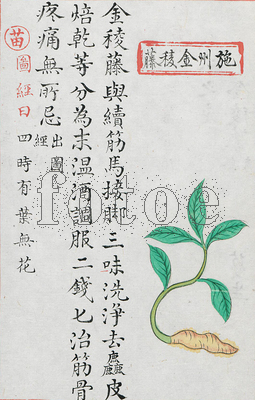 施州金稜藤
金稜藤與續筋馬接脚三味洗淨去麄皮
焙乾等分為末温酒調服二錢匕治筋骨
疼痛無所忌出圖經
苗圖經曰四時有葉無花
fotoe